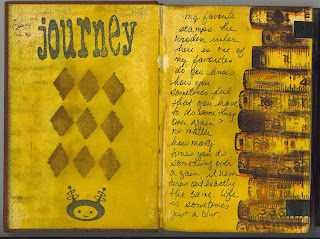 journey
my favorite
stamps. the
wooden ruler
here is one of
my favorites
do you know
how you
sometimes feel
that you have
to do something
over again?
no matter
how many
times you do
something over
again it never
turns out exactly
the same. life
is sometimes
just a blur.